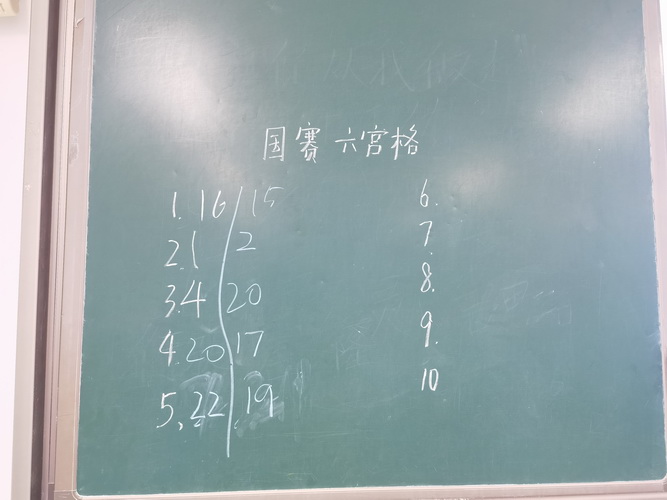 国赛 六宫格
1. 16/15
2. 1 / 2
3. 4 / 20
4. 20 / 17
5. 22 / 19
6.
7.
8.
9.
10